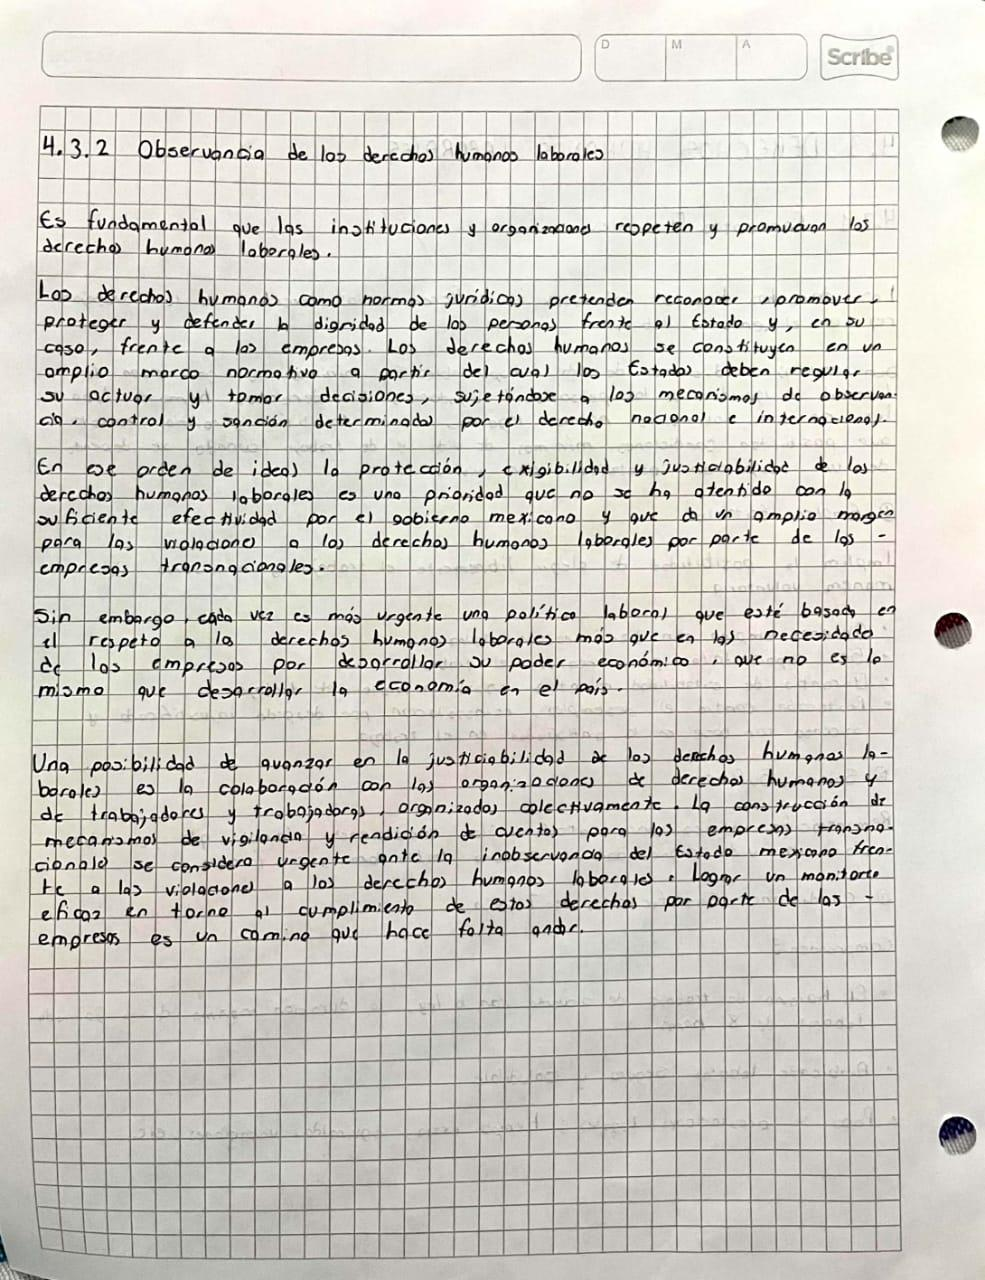 D M A Scribe
4.3.2 Observancia de los derechos humanos laborales
Es fundamental que las instituciones y organizaciones respeten y promuevan los
derechos humanos laborales.
Los derechos humanos como normas jurídicas pretenden reconocer, promover,
proteger y defender la dignidad de las personas frente al Estado y, en su
caso, frente a las empresas. Los derechos humanos se constituyen en un
amplio marco normativo a partir del cual los Estados deben regular
su actuar y tomar decisiones, sujetándose a los mecanismos de observan
cia, control y sanción determinados por el derecho nacional e internacional.
En ese orden de ideas la protección, exigibilidad y justiciabilidad de los
derechos humanos laborales es una prioridad que no se ha atentido con la
suficiente efectividad por el gobierno mexicano y que da un amplio margen
para las violaciones a los derechos humanos laborales por parte de las -
empresas transnacionales.
Sin embargo, cada vez es más urgente una política laboral que esté basada en
el respeto a los derechos humanos laborales más que en las necesidades
de las empresas por desarrollar su poder económico, que no es lo
mismo que desarrollar la economía en el país.
Una posibilidad de avanzar en la justiciabilidad de los derechos humanos la-
borales es la colaboración con las organizaciones de derechos humanos y
de trabajadores y trabajadoras, organizados colectivamente. La construcción de
mecanismos de vigilancia y rendición de cuentas para las empresas transna-
cionales se considera urgente ante la inobservancia del Estado mexicano fren-
te a las violaciones a los derechos humanos laborales. Lograr un monitoreo
eficaz en torno al cumplimiento de estos derechos por parte de las -
empresas es un camino que hace falta andar.